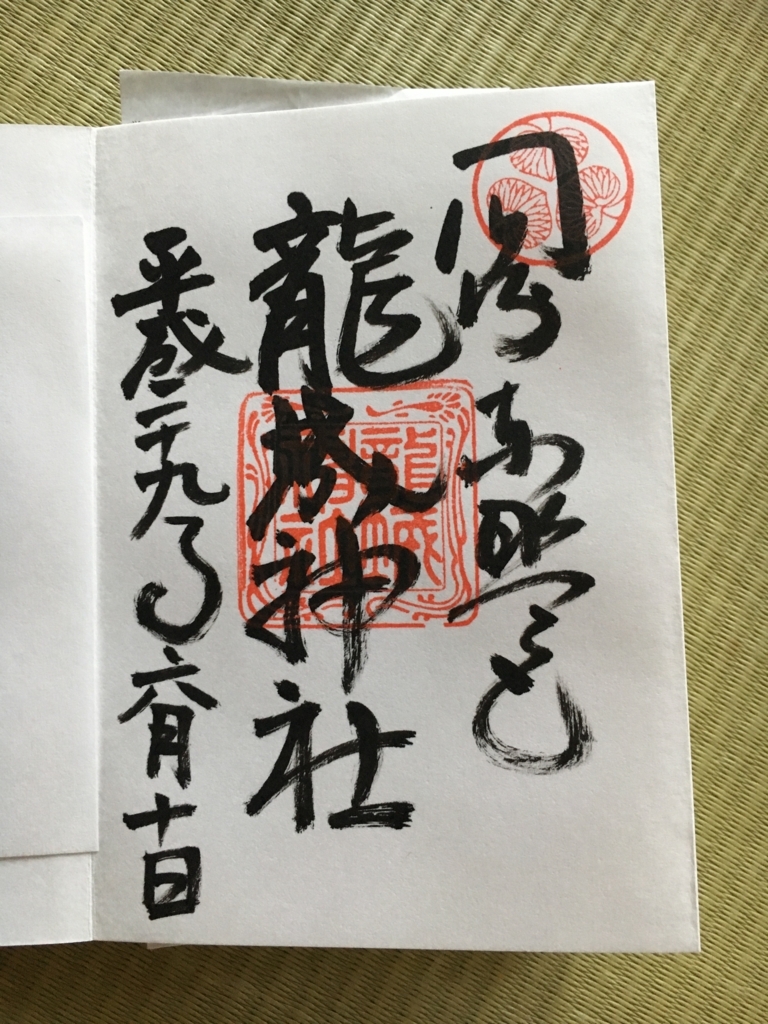 岡崎東照宮
龍城神社
平成二十九年六月十日
龍城神社